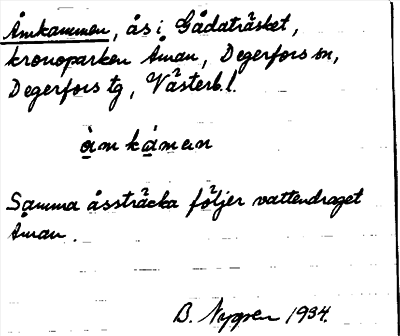 Åmkammen, ås i Gådaträsket,
kronoparken Åman, Degerfors sn,
Degerfors tg, Västerb. l.
àmkáman
Samma åssträcka följer vattendraget
Åman.
B. Nygren 1934.